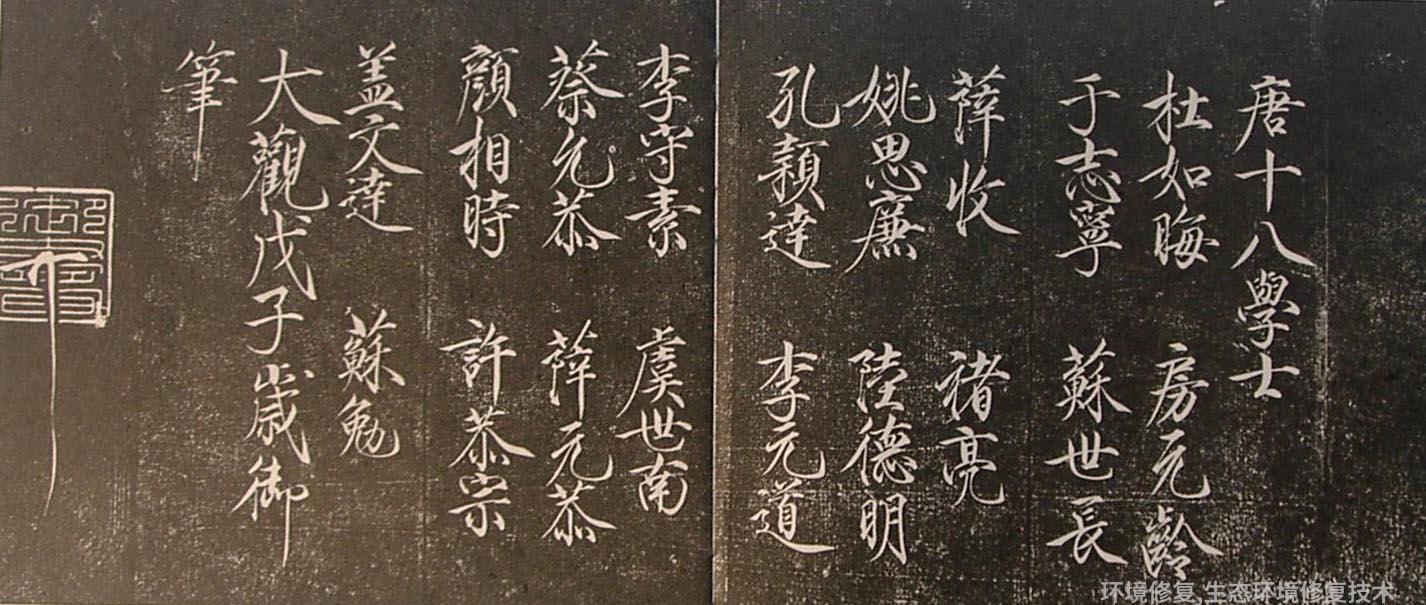 唐十八學士
杜如晦 房元齡
于志寧 蘇世長
薛收 褚亮
姚思廉 陸德明
孔穎達 李元道
李守素 虞世南
蔡允恭 薛元恭
顏相時 許恭宗
盖文達 蘇勉
大觀戊子歲御
筆
环境修复,生态环境修复技术